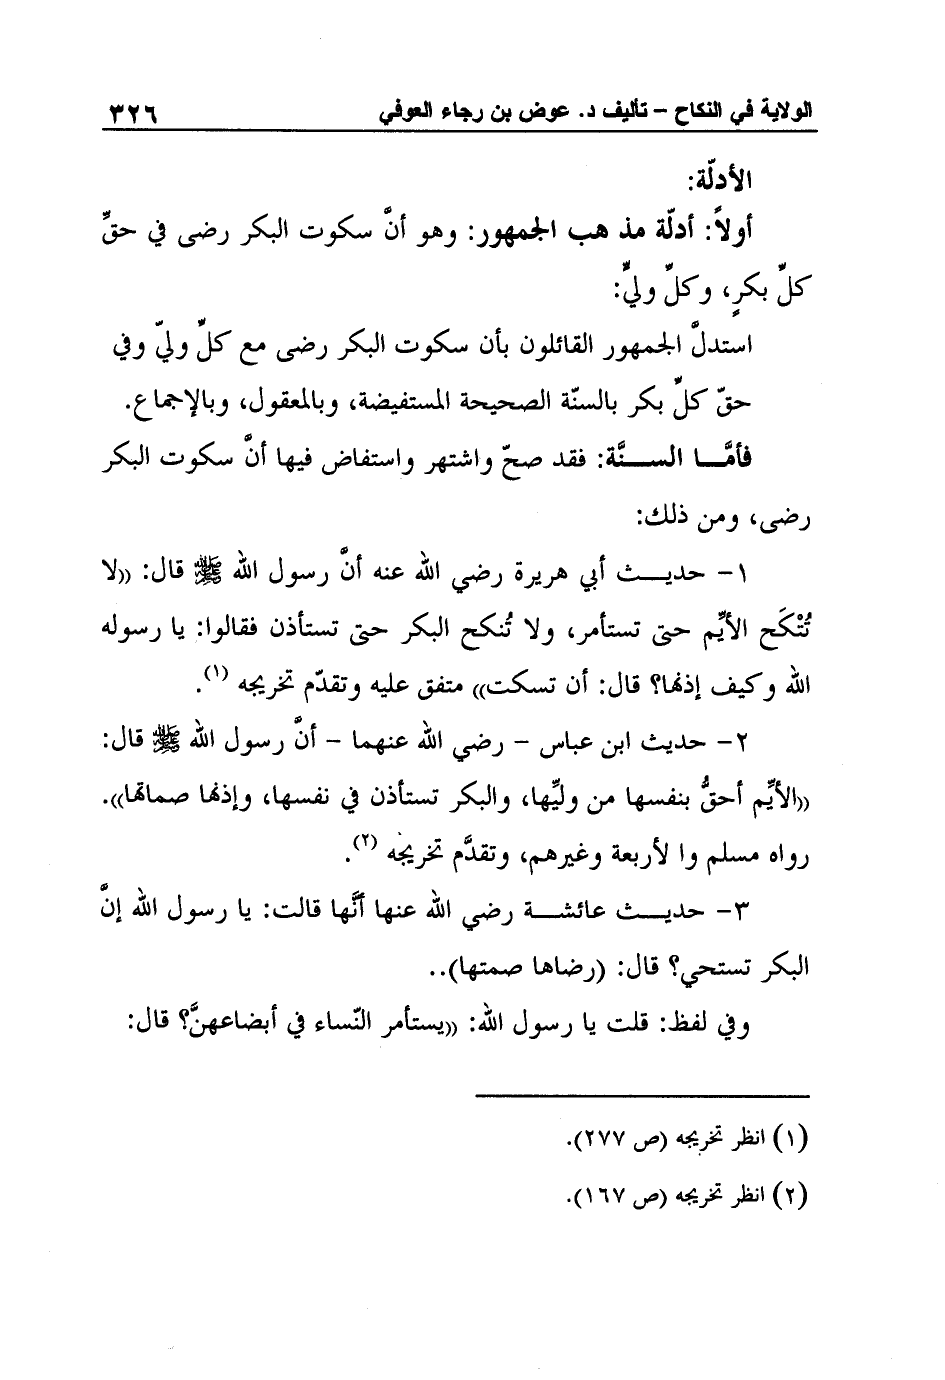 الولاية في النكاح – تأليف د. عوض بن رجاء العوفي ٣٢٦
الأدلّة:
أولاً: أدلّة مذهب الجمهور: وهو أنَّ سكوت البكر رضى في حقِّ
كلِّ بكرٍ، وكلِّ وليٍّ:
استدلَّ الجمهور القائلون بأن سكوت البكر رضى مع كلِّ وليّ وفي
حقّ كلِّ بكر بالسنّة الصحيحة المستفيضة، وبالمعقول، وبالإجماع.
فأمَّا السنَّة: فقد صحّ واشتهر واستفاض فيها أنَّ سكوت البكر
رضى، ومن ذلك:
١- حديث أبي هريرة رضي الله عنه أنَّ رسول الله ﷺ قال: ((لا
تُنْكَح الأيِّم حتى تستأمر، ولا تُنكح البكر حتى تستأذن فقالوا: يا رسوله
الله وكيف إذنها؟ قال: أن تسكت)) متفق عليه وتقدّم تخريجه (١).
٢- حديث ابن عباس – رضي الله عنهما – أنَّ رسول الله ﷺ قال:
((الأيِّم أحقُّ بنفسها من وليِّها، والبكر تستأذن في نفسها، وإذنها صماتها)).
رواه مسلم وا لأربعة وغيرهم، وتقدَّم تخريجه (٢).
٣- حديث عائشة رضي الله عنها أنَّها قالت: يا رسول الله إنَّ
البكر تستحي؟ قال: (رضاها صمتها)..
وفي لفظ: قلت يا رسول الله: ((يستأمر النّساء في أبضاعهنَّ؟ قال:
(١) انظر تخريجه (ص ٢٧٧).
(٢) انظر تخريجه (ص ١٦٧).